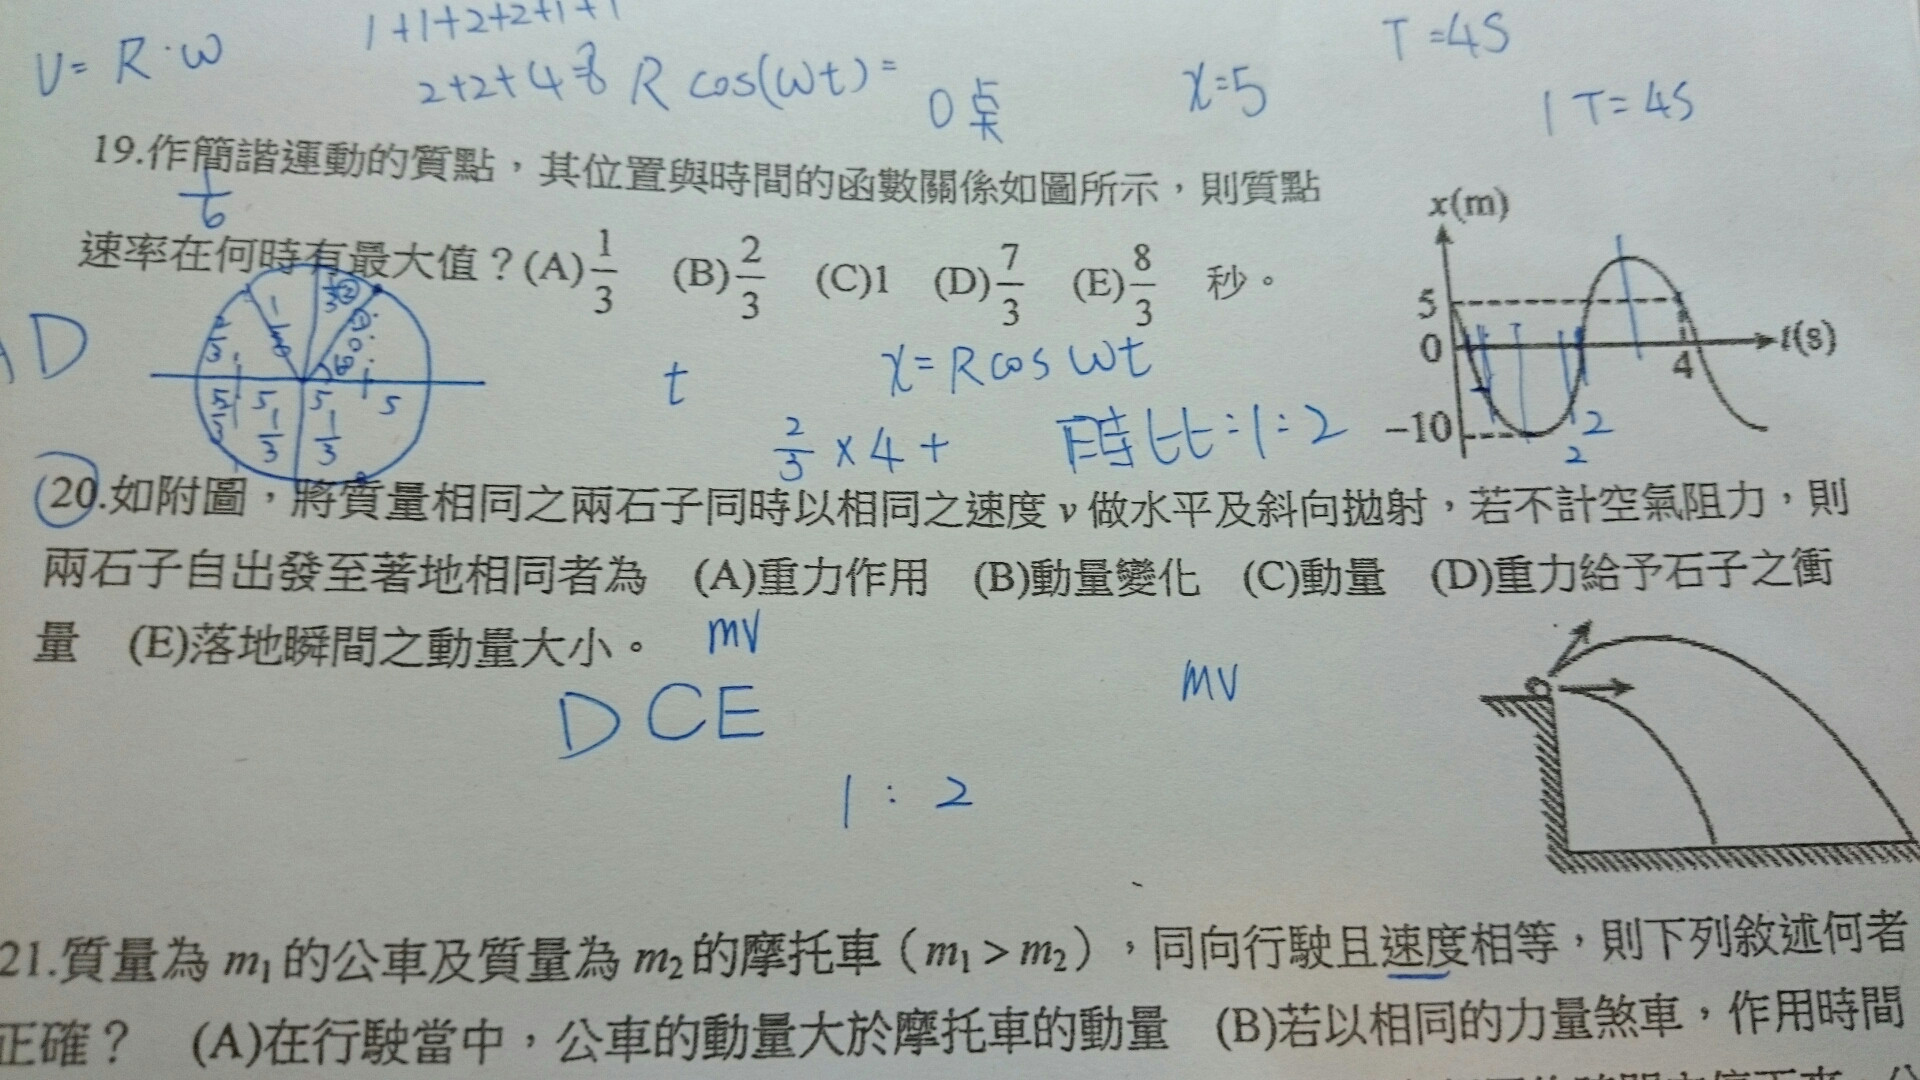 1+1+2+2+1+1
V= R·ω
2+2+4=8
R cos(ωt)=
0桌
x=5
T=4S
1T=4S
19.作簡諧運動的質點,其位置與時間的函數關係如圖所示,則質點
速率在何時有最大值?(A)1/3 (B)2/3 (C)1 (D)7/3 (E)8/3 秒。
1/6
D
t
x=Rcos ωt
2/3 ×4+
時比=1:2
x(m)
5
0
4
t(s)
-10
2
2
5 5 5
1/3 1/3
(20).如附圖,將質量相同之兩石子同時以相同之速度 v 做水平及斜向拋射,若不計空氣阻力,則
兩石子自出發至著地相同者為 (A)重力作用 (B)動量變化 (C)動量 (D)重力給予石子之衝
量 (E)落地瞬間之動量大小。
mV
mV
DCE
1 : 2
21.質量為 m₁的公車及質量為 m₂的摩托車(m₁>m₂),同向行駛且速度相等,則下列敘述何者
正確? (A)在行駛當中,公車的動量大於摩托車的動量 (B)若以相同的力量煞車,作用時間